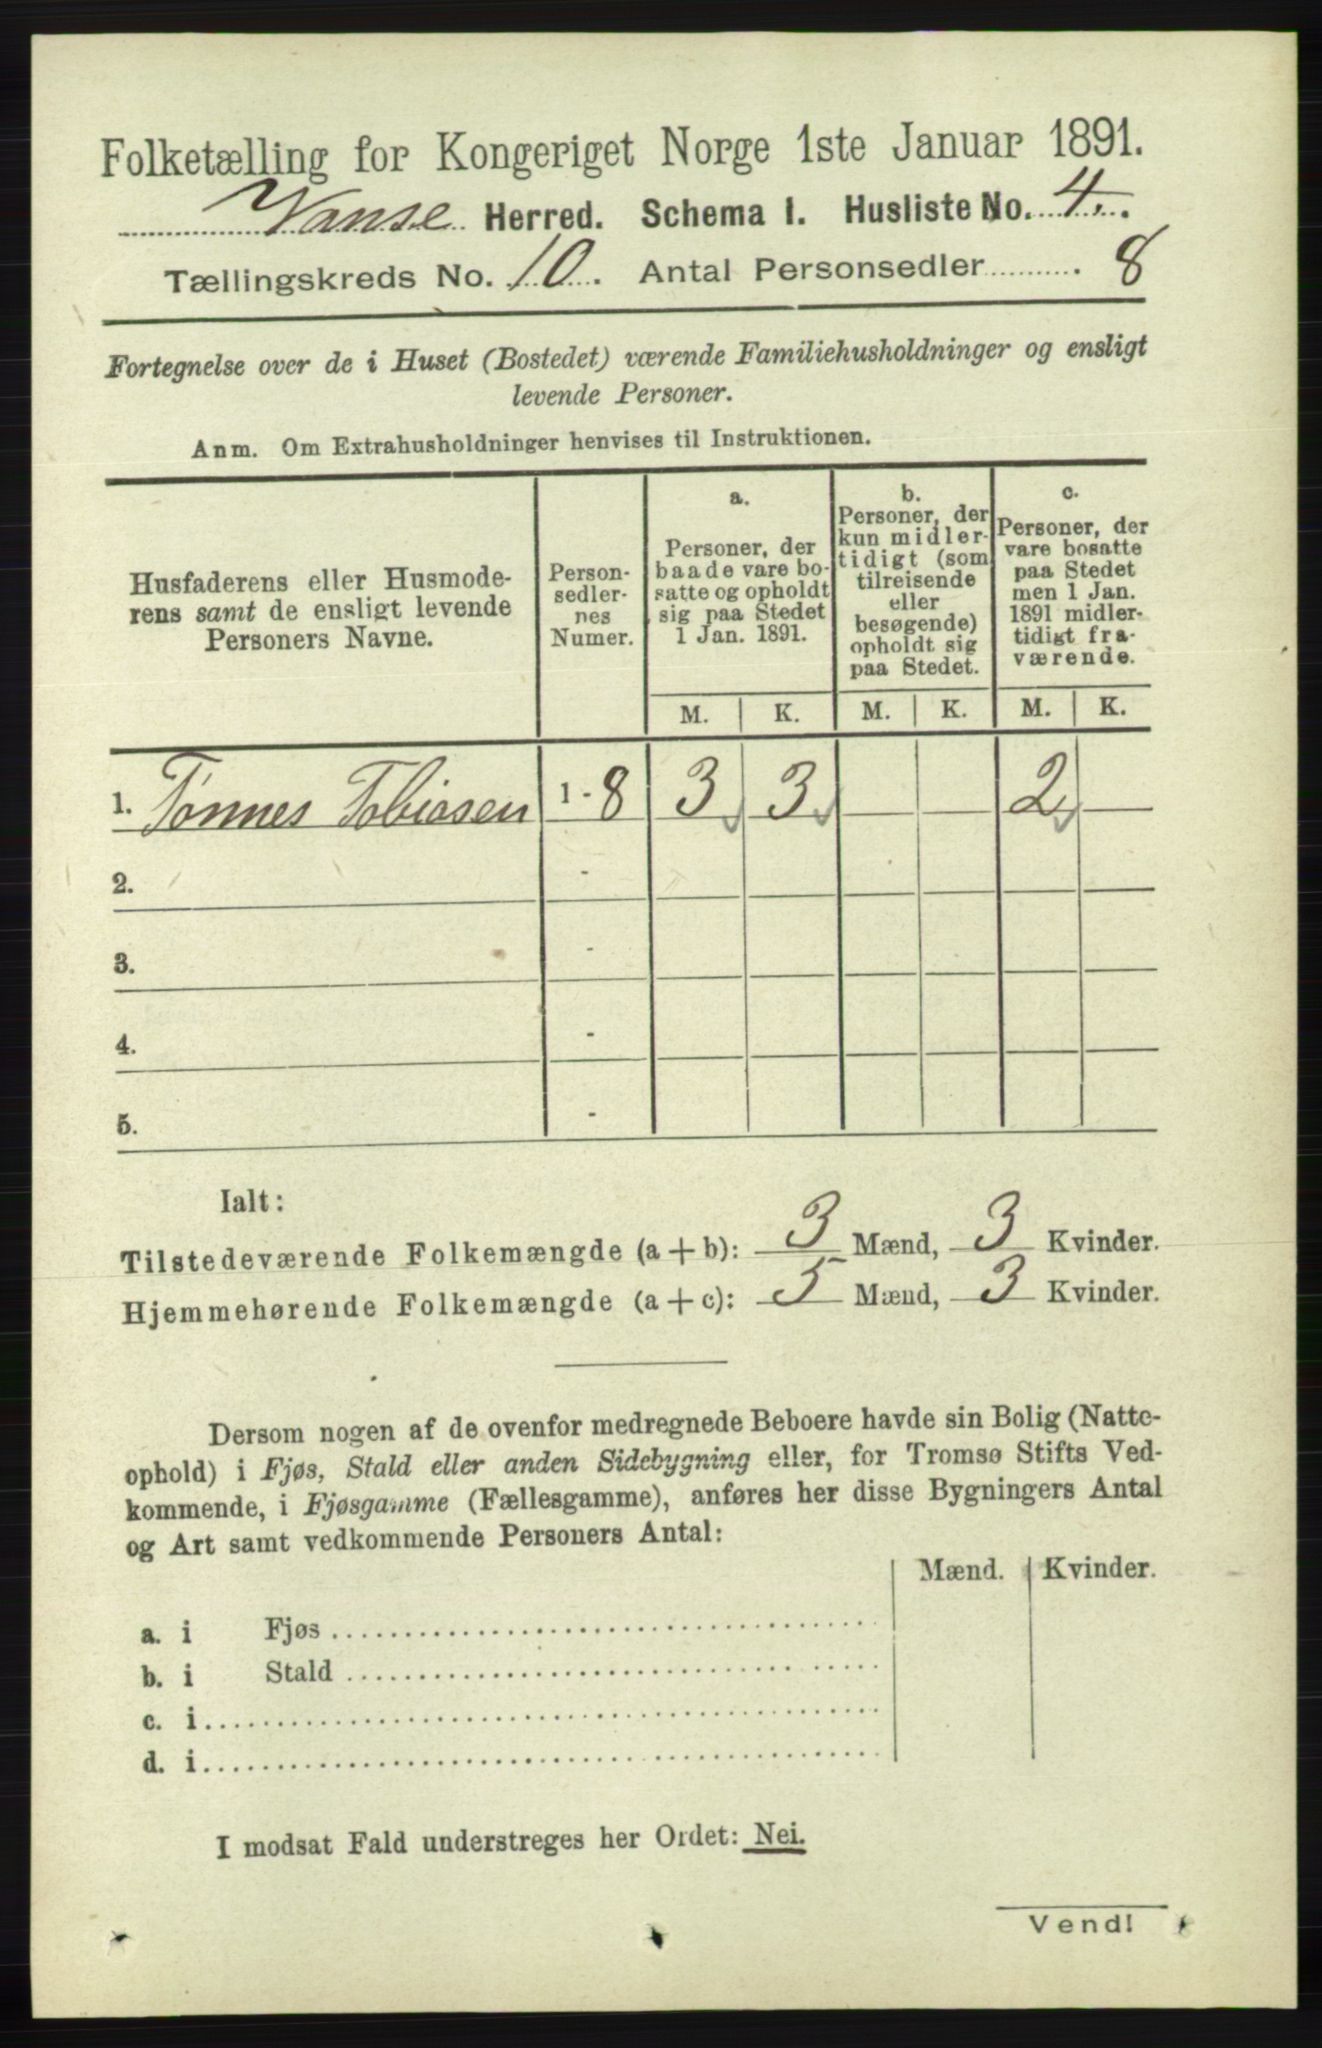 Folketælling for Kongeriget Norge 1ste Januar 1891.
Vanse Herred. Schema I. Husliste No. 4.
Tællingskreds No. 10. Antal Personsedler . 8
Fortegnelse over de i Huset (Bostedet) værende Familiehusholdninger og ensligt
levende Personer.
Anm. Om Extrahusholdninger henvises til Instruktionen.
Husfaderens eller Husmode-
rens samt de ensligt levende
Personers Navne.
Person-
sedler-
nes
Numer.
a.
Personer, der
baade vare bo-
satte og opholdt
sig paa Stedet
1 Jan. 1891.
b.
Personer, der
kun midler-
tidigt (som
tilreisende
eller
besøgende)
opholdt sig
paa Stedet.
c.
Personer, der
vare bosatte
paa Stedet
men 1 Jan.
1891 midler-
tidigt fra-
værende.
M. K. M. K. M. K.
1. Tønnes Tobiasen 1 - 8 3 3 — — 2 —
2. -
3. -
4. -
5. -
Ialt:
Tilstedeværende Folkemængde (a + b): 3 Mænd, 3 Kvinder.
Hjemmehørende Folkemængde (a + c): 5 Mænd, 3 Kvinder.
Dersom nogen af de ovenfor medregnede Beboere havde sin Bolig (Natte-
ophold) i Fjøs, Stald eller anden Sidebygning eller, for Tromsø Stifts Ved-
kommende, i Fjøsgamme (Fællesgamme), anføres her disse Bygningers Antal
og Art samt vedkommende Personers Antal:
Mænd. Kvinder.
a. i Fjøs
b. i Stald
c. i
d. i
I modsat Fald understreges her Ordet: Nei.
Vend!